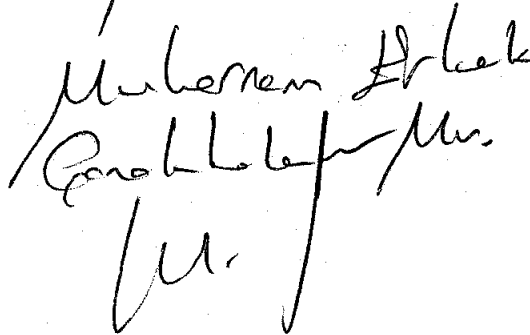 Muharrem Erkek
Çanakkale Mv.